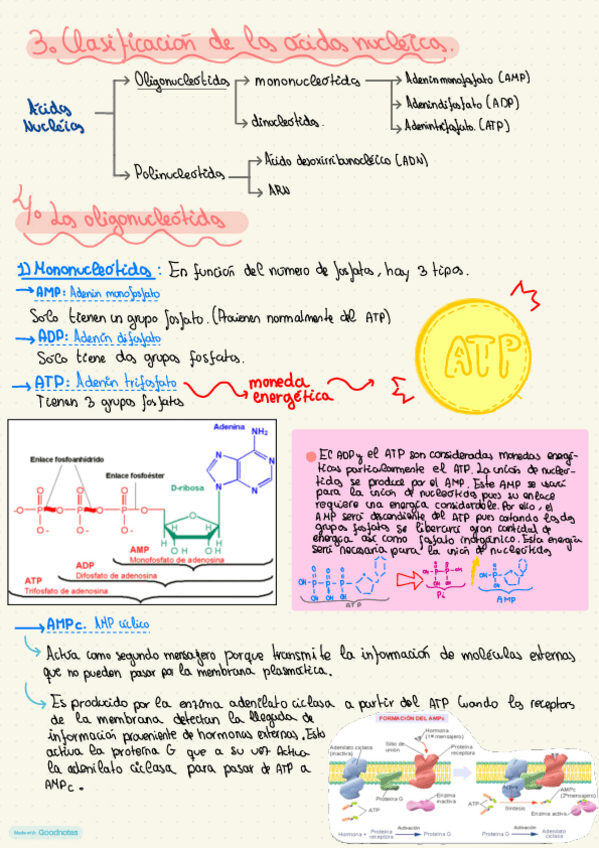 3. Clasificación de los ácidos nucleicos.
Ácidos Nucleicos
Oligonucleótidos
mononucleótidos
Adeninmonofosfato (AMP)
Adenindifosfato (ADP)
Adenintrifosfato. (ATP)
dinucleótidos.
Polinucleótidos
Ácido desoxirribonucleico (ADN)
ARN
4. Los oligonucleótidos
1) Mononucleótidos: En función del número de fosfatos, hay 3 tipos.
AMP: Adenin monofosfato
Solo tienen un grupo fosfato. (Provienen normalmente del ATP)
ADP: Adenín difosfato
Solo tiene dos grupos fosfatos.
ATP: Adenín trifosfato
moneda energética
Tienen 3 grupos fosfatos
ATP
Adenina
NH₂
Enlace fosfoanhídrido
Enlace fosfoéster
D-ribosa
AMP
Monofosfato de adenosina
ADP
Difosfato de adenosina
ATP
Trifosfato de adenosina
El ADP y el ATP son consideradas monedas energé-
ticas particularmente el ATP. La unión de nucleó-
tidos se produce por el AMP. Este AMP se usará
para la unión de nucleótidos pues su enlace
requiere una energía considerable. Por ello, el
AMP será descendiente del ATP pues cortando los dos
grupos fosfatos se liberará gran cantidad de
energía así como fosfato inorgánico. Esta energía
será necesaria para la unión de nucleótidos
ATP
Pi
AMP
AMPc. AMP cíclico
Actúa como segundo mensajero porque transmite la información de moléculas externas
que no pueden pasar por la membrana plasmática.
Es producido por la enzima adenilato ciclasa a partir del ATP cuando los receptors
de la membrana detectan la llegada de
información proveniente de hormonas externas. Esto
activa la proteína G que a su vez activa
la adenilato ciclasa para pasar de ATP a
AMPc.
FORMACIÓN DEL AMPc
Hormona
(1er mensajero)
Adenilato ciclasa
(inactiva)
Sitio de
unión
Proteína
receptora
Proteína G
Enzima
inactiva
ATP
Activa
ATP
Síntesis
AMPc
(2º mensajero)
Enzima activa
Hormona + Proteína receptora
Activación
Proteína G
Proteína G
Activación
Adenilato ciclasa
Made with Goodnotes